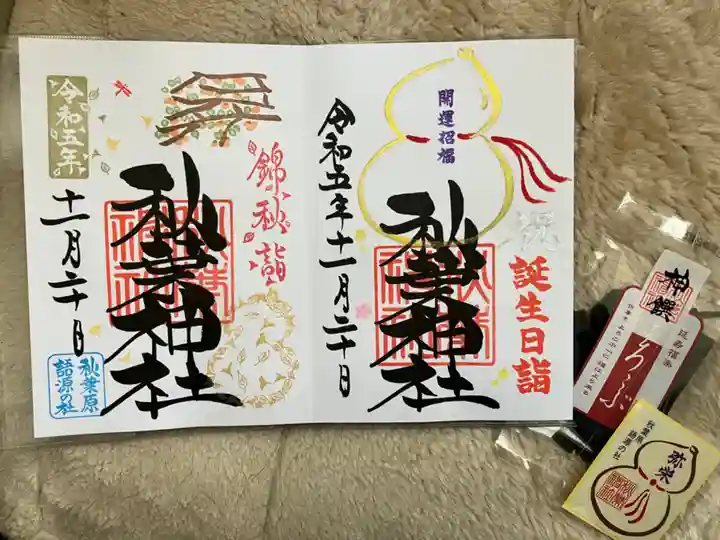 開運招福
祝
誕生日詣
秋葉神社
令和五年十一月二十日
錦秋詣
秋葉神社
令和五年
十一月二十日
秋葉原
語源の社
神饌
延寿福楽
弥栄
秋葉原
語源の社